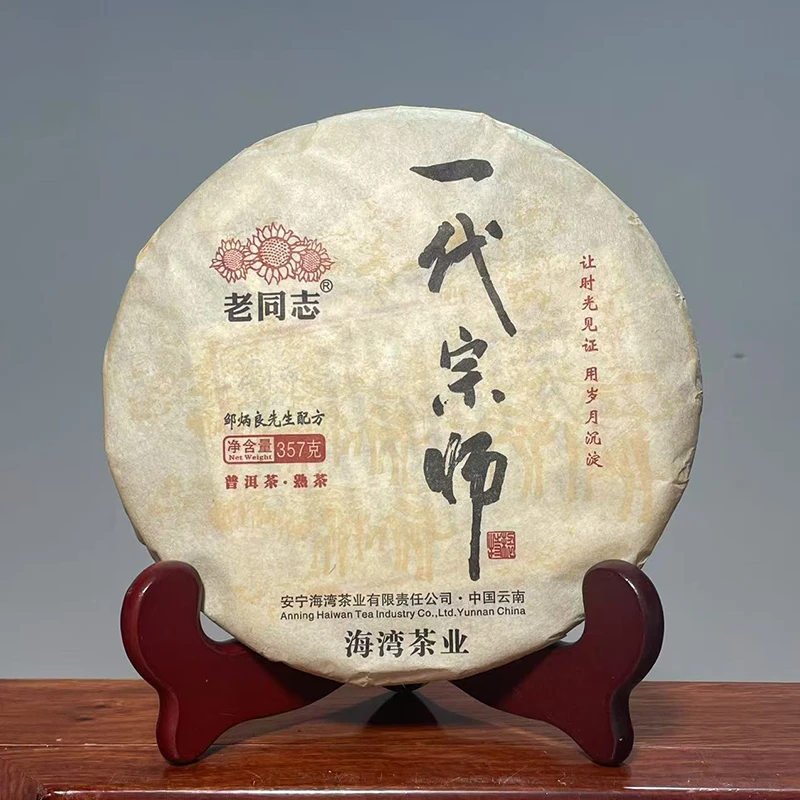 一代宗师
让时光见证 用岁月沉淀
老同志®
邹炳良先生配方
净含量 357克
Net Weight
普洱茶·熟茶
安宁海湾茶业有限责任公司·中国云南
Anning Haiwan Tea Industry Co.,Ltd.Yunnan China
海湾茶业